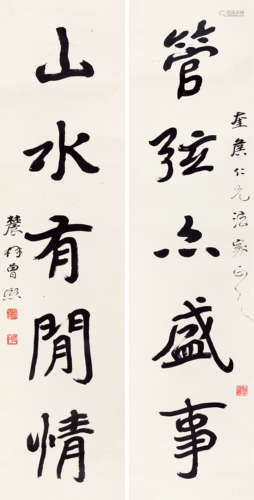 管弦亦盛事
仁兄法家正之
山水有閒情
農髯曾熙